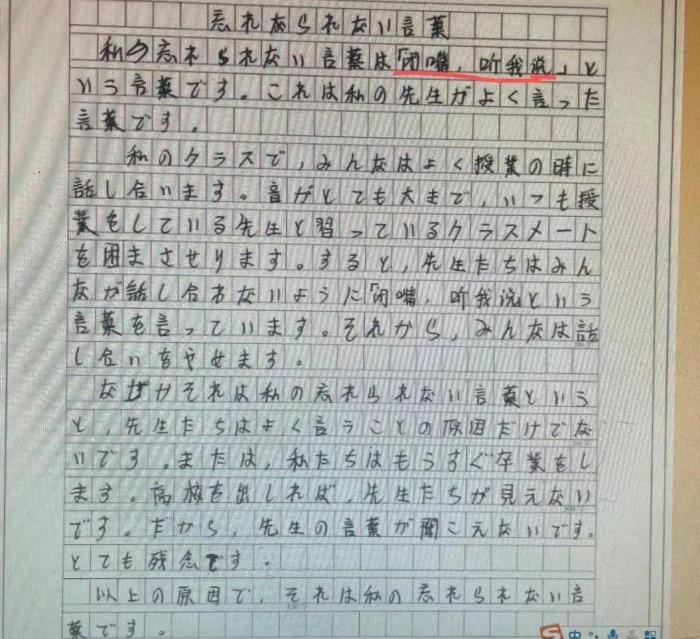 忘れなられない言葉
私の忘れられない言葉は「闭嘴,听我说」と
いう言葉です。これは私の先生がよく言った
言葉です。
私のクラスで,みんなはよく授業の時に
話し合います。音がとても大まで,いつも授
業をしている先生と習っているクラスメート
を困まさせります。すると,先生たちはみん
なが話し合わないように「闭嘴,听我说という
言葉を言っています。それから,みんなは話
し合いをやめます。
なぜかそれは私の忘れられない言葉という
と,先生たちはよく言うことの原因だけでな
いです。または,私たちはもうすぐ卒業をし
ます。高校を出しれば,先生たちが見えない
です。だから,先生の言葉が聞こえないです。
とても残念です。
以上の原因で,それは私の忘れられない言
葉です。
中